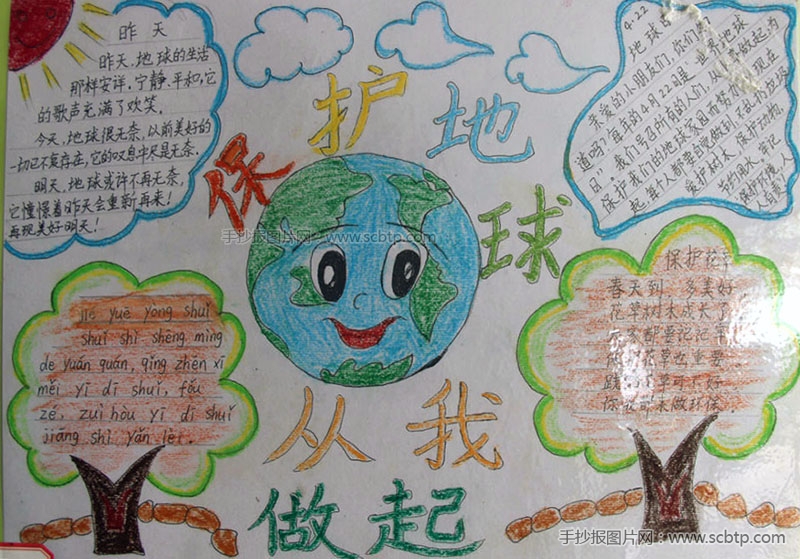 昨天
昨天,地球的生活
那样安详,宁静,平和,它
的歌声充满了欢笑。
今天,地球很无奈,以前美好的
一切已不复存在,它的叹息中尽是无奈。
明天,地球或许不再无奈,
它憧憬着昨天会重新再来!
再现美好明天!
保护地球
从我
做起
4.22
地球
亲爱的小朋友们,你们
道吗?每年的4月22日是世界地球
日"。我们号召所有的人们,从
保护我们的地球家园而努力
起,每个人都要自觉做到不乱扔垃圾
爱护树木,保护动物,
节约用水,牢记
保护环境,人
人有责
jié yuē yòng shuǐ
shuǐ shì shēng mìng
de yuán quán, qǐng zhēn xī
měi yī dī shuǐ, fǒu
zé, zuì hòu yī dī shuǐ
jiāng shì yǎn lèi.
保护花草
春天到,多美好,
花草树木成长了,
家都要记记牢
花草也重要
草可不好
你我都来做环保。
手抄报图片网:www.scbtp.com
手抄报图片网:www.scbtp.com
手抄报图片网:www.scbtp.com